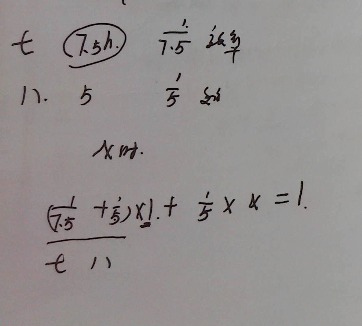 七 7.5h. 1/7.5
八. 5 1/5
x时.
(1/7.5 + 1/5)×1. + 1/5 × x = 1.
七 八